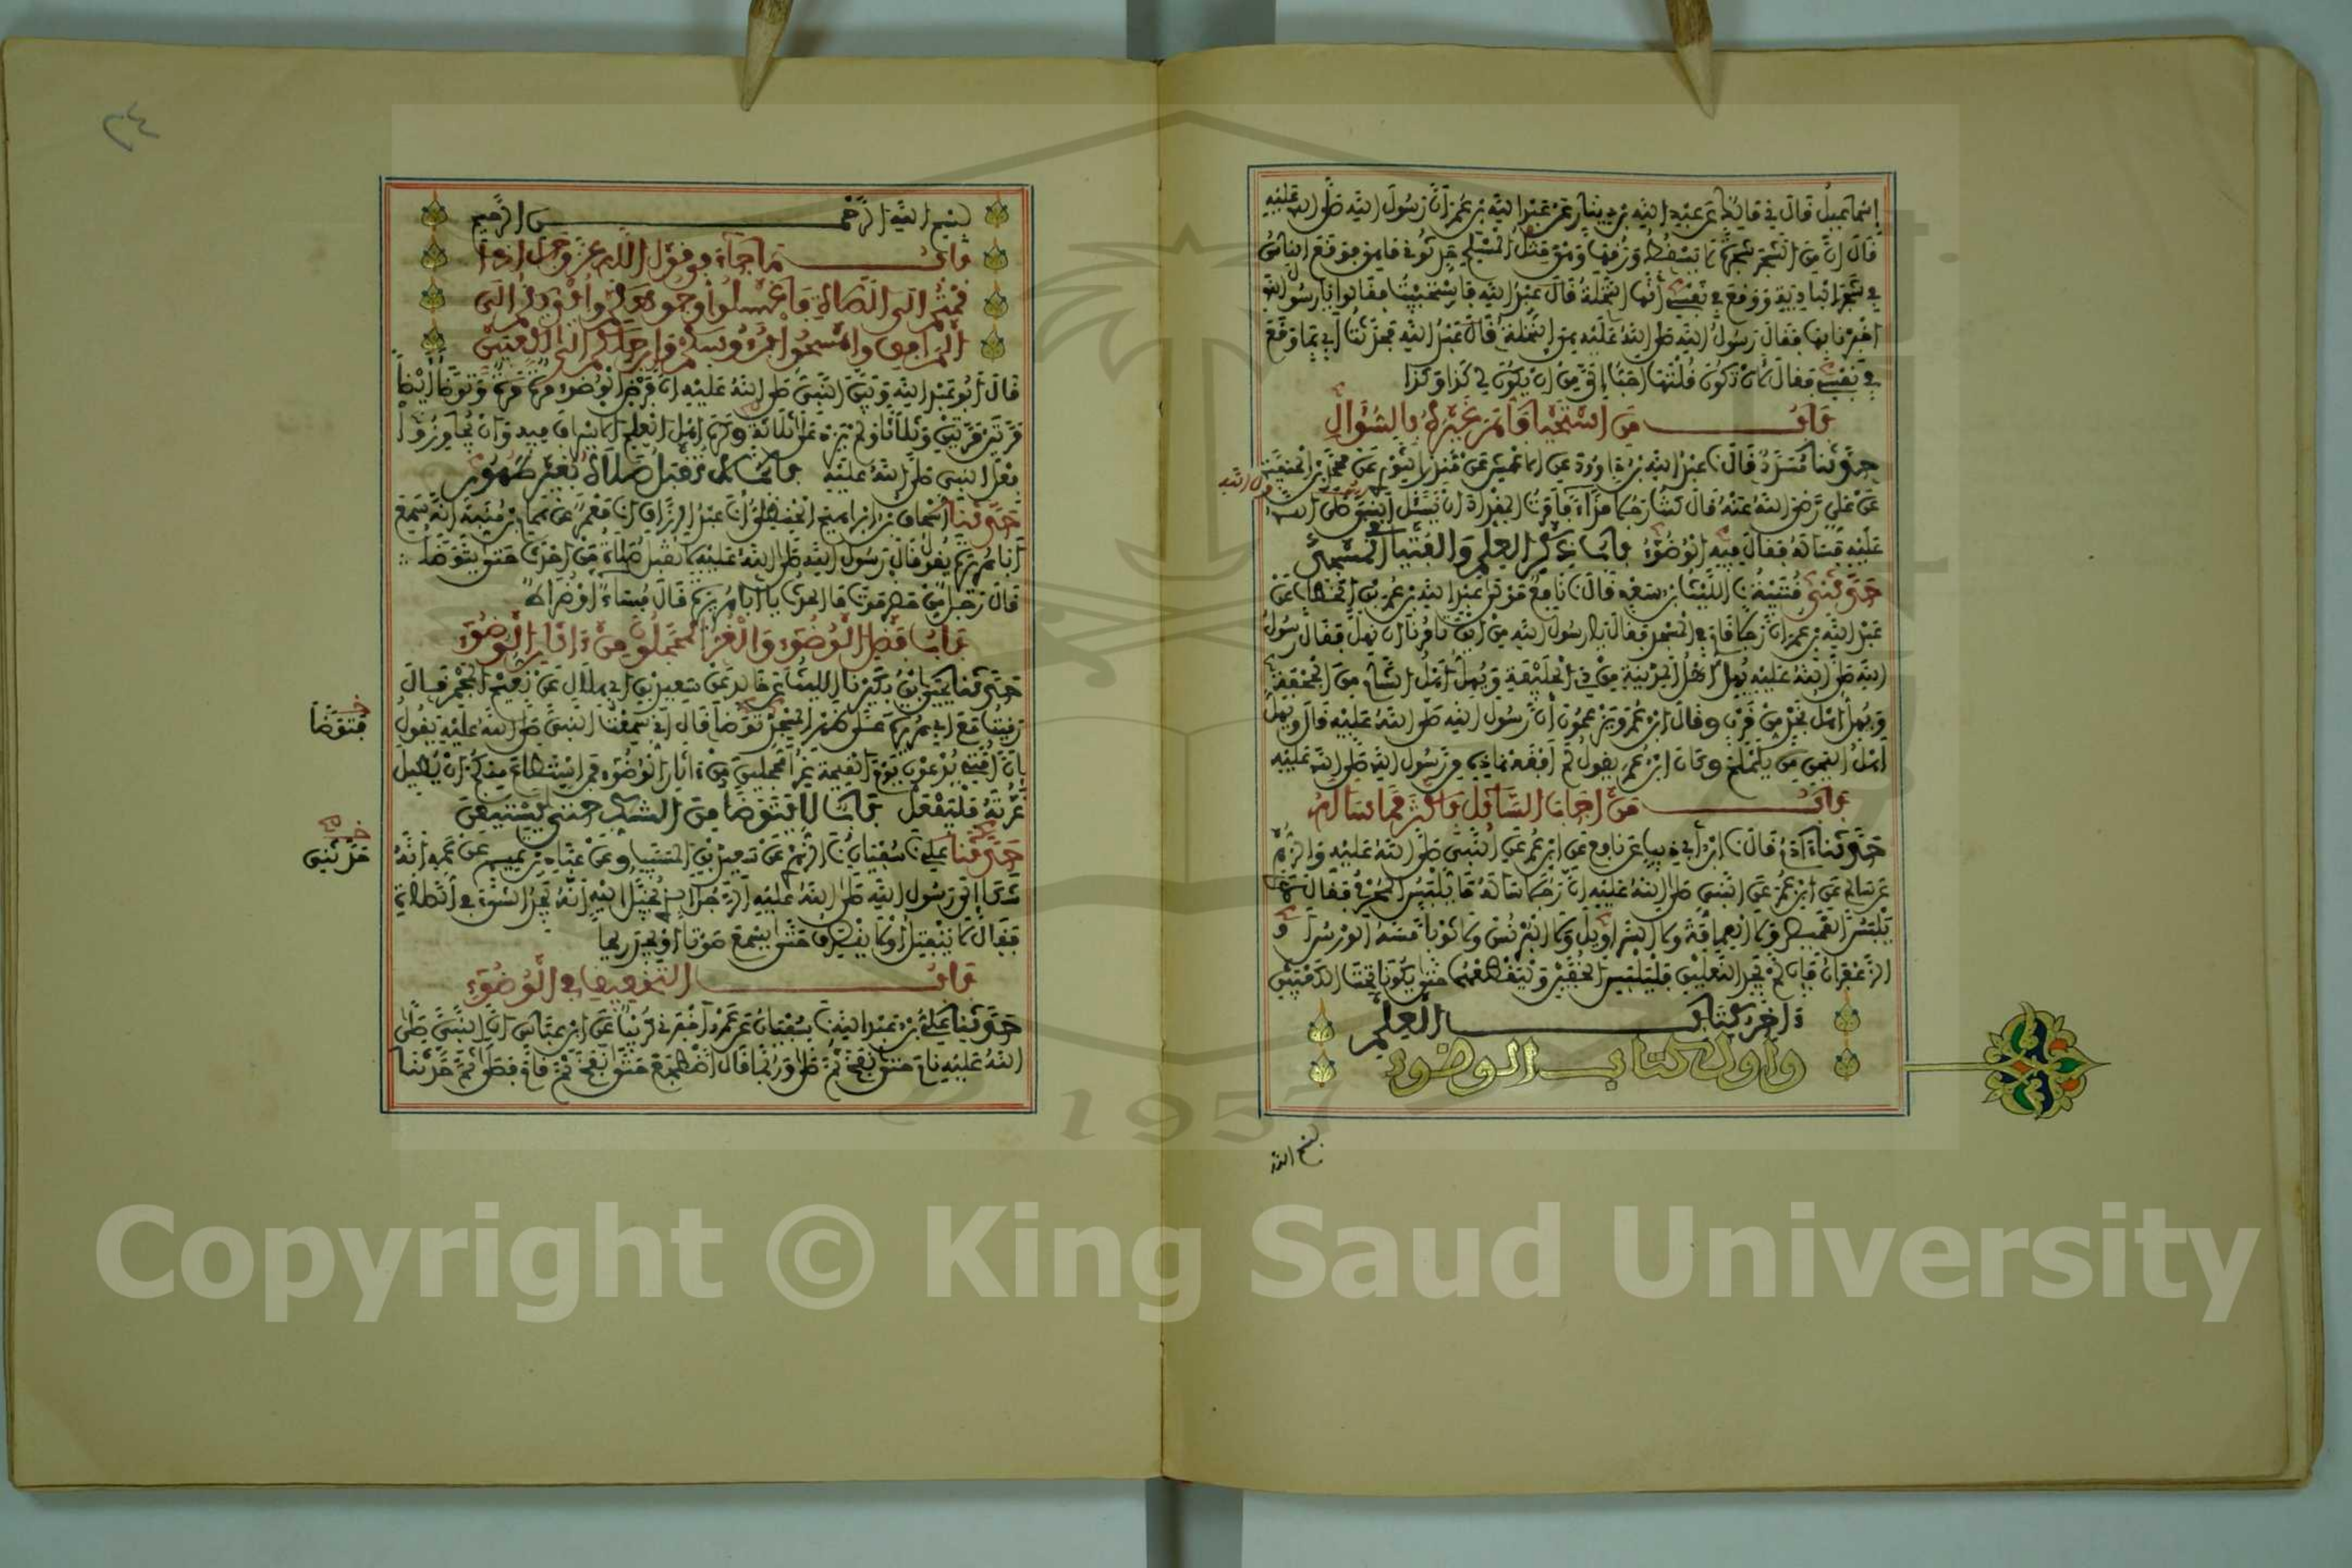 إسماعيل قال في مالك عن عبد الله بن دينار عن عبد الله بن عمر أن رسول الله صلى الله عليه
قال إن من الشجر شجرة لا يسقط ورقها وهي مثل المسلم حدثوني ما هي فوقع الناس
في شجر البادية ووقع في نفسي أنها النخلة قال عبد الله فاستحييت فقالوا يا رسول الله
أخبرنا بها فقال رسول الله صلى الله عليه هي النخلة قال عبد الله فحدثت أبي بما وقع
في نفسي فقال لأن تكون قلتها أحب إلي من أن يكون لي كذا وكذا
باب من استحيا فأمر غيره بالسؤال
حدثنا مسدد قال نا عبد الله بن داود عن الأعمش عن منذر الثوري عن محمد بن الحنفية
عن علي رضي الله عنه قال كنت رجلا مذاء فأمرت المقداد أن يسئل النبي صلى الله
عليه فسأله فقال فيه الوضوء باب ذكر العلم والفتيا في المسجد
حدثني قتيبة نا الليث بن سعد قال نا نافع مولى عبد الله بن عمر بن الخطاب عن
عبد الله بن عمر أن رجلا قام في المسجد فقال يا رسول الله من أين تأمرنا أن نهل فقال رسول
الله صلى الله عليه يهل أهل المدينة من ذي الحليفة ويهل أهل الشام من الجحفة
ويهل أهل نجد من قرن وقال ابن عمر ويزعمون أن رسول الله صلى الله عليه قال ويهل
أهل اليمن من يلملم وكان ابن عمر يقول لم أفقه هاذه من رسول الله صلى الله عليه
باب من أجاب السائل بأكثر مما سأله
حدثنا آدم قال نا ابن أبي ذيب عن نافع عن ابن عمر عن النبي صلى الله عليه والزهري
عن سالم عن ابن عمر عن النبي صلى الله عليه أن رجلا سأله ما يلبس المحرم فقال لا
يلبس القميص ولا العمامة ولا السراويل ولا البرنس ولا ثوبا مسه الورس أو
الزعفران فإن لم يجد النعلين فليلبس الخفين وليقطعهما حتى يكونا تحت الكعبين
آخر كتاب العلم
وأول كتاب الوضوء
بسم الله
٢٤
بسم الله الرحمن الرحيم
باب ما جاء في قول الله عز وجل إذا
قمتم إلى الصلاة فاغسلوا وجوهكم وأيديكم إلى
المرافق وامسحوا برءوسكم وأرجلكم إلى الكعبين
قال أبو عبد الله وبين النبي صلى الله عليه أن فرض الوضوء مرة مرة وتوضأ أيضا
مرتين مرتين وثلاثا ولم يزد على ثلاثة وكره أهل العلم الإسراف فيه وأن يجاوزوا
فعل النبي صلى الله عليه باب لا تقبل صلاة بغير طهور
حدثنا إسحاق بن إبراهيم الحنظلي أنا عبد الرزاق أنا معمر عن همام بن منبه أنه سمع
أبا هريرة يقول قال رسول الله صلى الله عليه لا تقبل صلاة من أحدث حتى يتوضأ
قال رجل من حضرموت ما الحدث يا أبا هريرة قال فساء أو ضراط
باب فضل الوضوء والغر المحجلون من آثار الوضوء
حدثنا يحيى بن بكير نا الليث عن خالد عن سعيد بن أبي هلال عن نعيم المجمر قال
رقيت مع أبي هريرة على ظهر المسجد توضأ قال إني سمعت النبي صلى الله عليه يقول
فتوضأ
إن أمتي يدعون يوم القيمة غرا محجلين من آثار الوضوء فمن استطاع منكم أن يطيل
غرته فليفعل باب لا يتوضأ من الشك حتى يستيقن
حدثنا علي نا سفيان نا الزهري عن سعيد بن المسيب وعن عباد بن تميم عن عمه أنه
حدثني
شكا إلى رسول الله صلى الله عليه الرجل الذي يخيل إليه أنه يجد الشيء في الصلاة
فقال لا ينفتل أو لا ينصرف حتى يسمع صوتا أو يجد ريحا
باب التخفيف في الوضوء
حدثنا علي بن عبد الله نا سفيان عن عمرو أخبرني كريب عن ابن عباس أن النبي صلى
الله عليه نام حتى نفخ ثم صلى وربما قال اضطجع حتى نفخ ثم قام فصلى ثم حدثنا
Copyright © King Saud University
1957